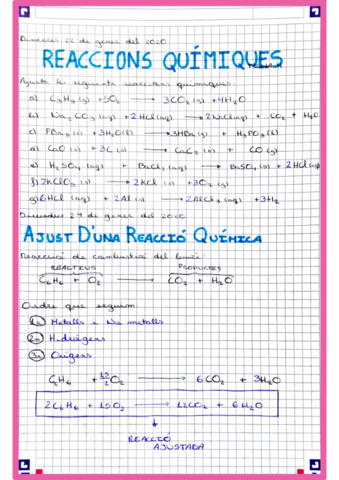 Dimecres 22 de gener del 2020
REACCIONS QUÍMIQUES
Ajusta les següents reaccions químiques:
a) C₃H₈ (g) + 5O₂ → 3CO₂ (g) + 4H₂O
b) Na₂CO₃ (aq) + 2HCl (aq) → 2NaCl (aq) + CO₂ + H₂O
c) PBr₃ (l) + 3H₂O (l) → 3HBr (g) + H₃PO₃ (l)
d) CaO (s) + 3C (s) → CaC₂ (s) + CO (g)
e) H₂SO₄ (aq) + BaCl₂ (aq) → BaSO₄ (s) + 2HCl (aq)
f) 2KClO₃ (s) → 2KCl (s) + 3O₂ (g)
g) 6HCl (aq) + 2Al (s) → 2AlCl₃ (aq) + 3H₂
Divendres 24 de gener del 2020
AJUST D'UNA REACCIÓ QUÍMICA
Reacció de combustió del benzè
REACTIUS PRODUCTES
C₆H₆ + O₂ → CO₂ + H₂O
Ordre que seguim
1r Metalls i No metalls
2n Hidrògens
3r Oxígens
C₆H₆ + 15/2 O₂ → 6CO₂ + 3H₂O
2C₆H₆ + 15O₂ → 12CO₂ + 6H₂O
REACCIÓ
AJUSTADA